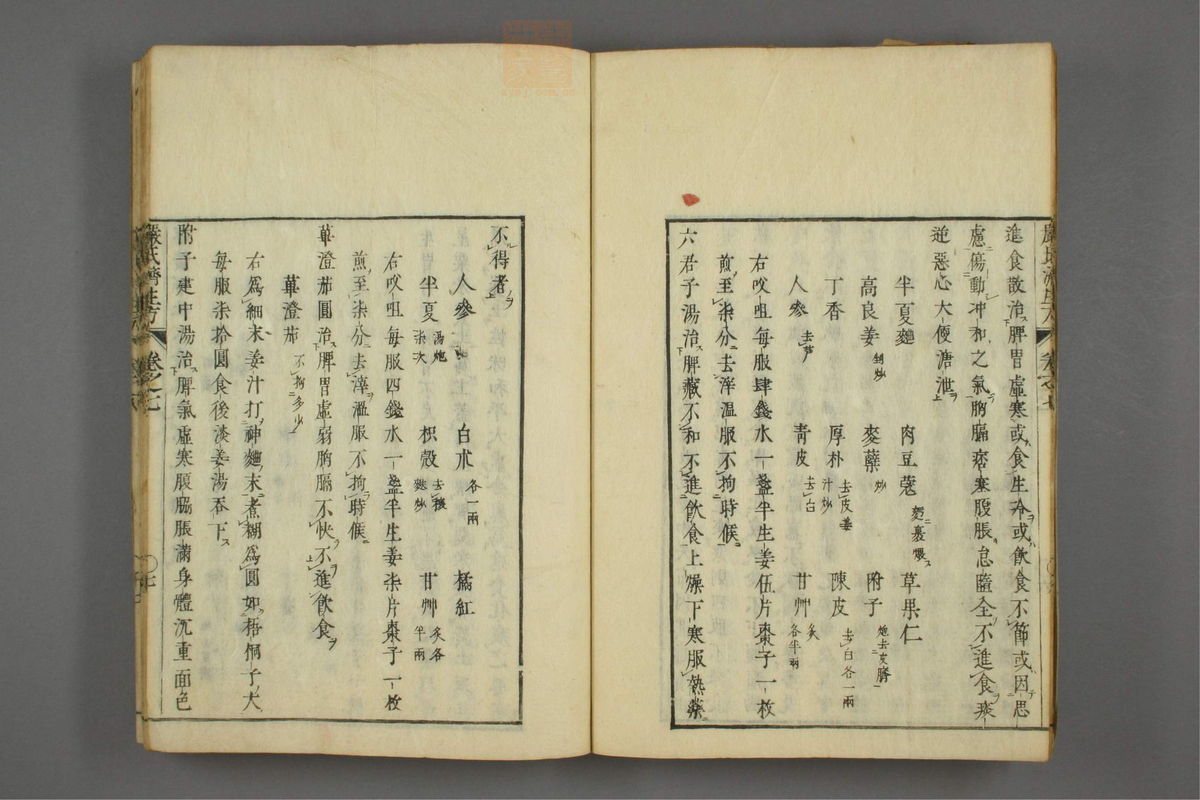 進食散治脾胃虛寒或食生冷或飲食不節或因思
慮傷動冲和之氣胷膈痞塞腹脹怠隨全不進食痰
逆惡心大便溏泄
半夏麯 肉豆蔻 麪裹煨 草果仁
高良姜 剉炒 麥蘖 炒 附子 炮去皮臍
丁香 厚朴 去皮姜汁炒 陳皮 去白各一兩
人參 去芦 青皮 去白 甘艸 炙各半兩
右㕮咀每服肆錢水一盞半生姜伍片棗子一枚
煎至柒分去滓溫服不拘時候
六君子湯治脾藏不和不進飲食上燥下寒服熱藥
嚴氏濟生方 卷之七
不得者
人參 白朮 各一兩 橘紅
半夏 湯炮柒次 枳殼 去穰麩炒 甘艸 炙各半兩
右㕮咀每服四錢水一盞半生姜柒片棗子一枚
煎至柒分去滓溫服不拘時候
蓽澄茄圓治脾胃虛弱胷膈不快不進飲食
蓽澄茄 不拘多少
右爲細末姜汁打神麯末煮糊爲圓如梧桐子大
每服柒拾圓食後淡姜湯吞下
附子建中湯治脾氣虛寒腹脇脹滿身體沉重面色
嚴氏濟生方 卷之七 七